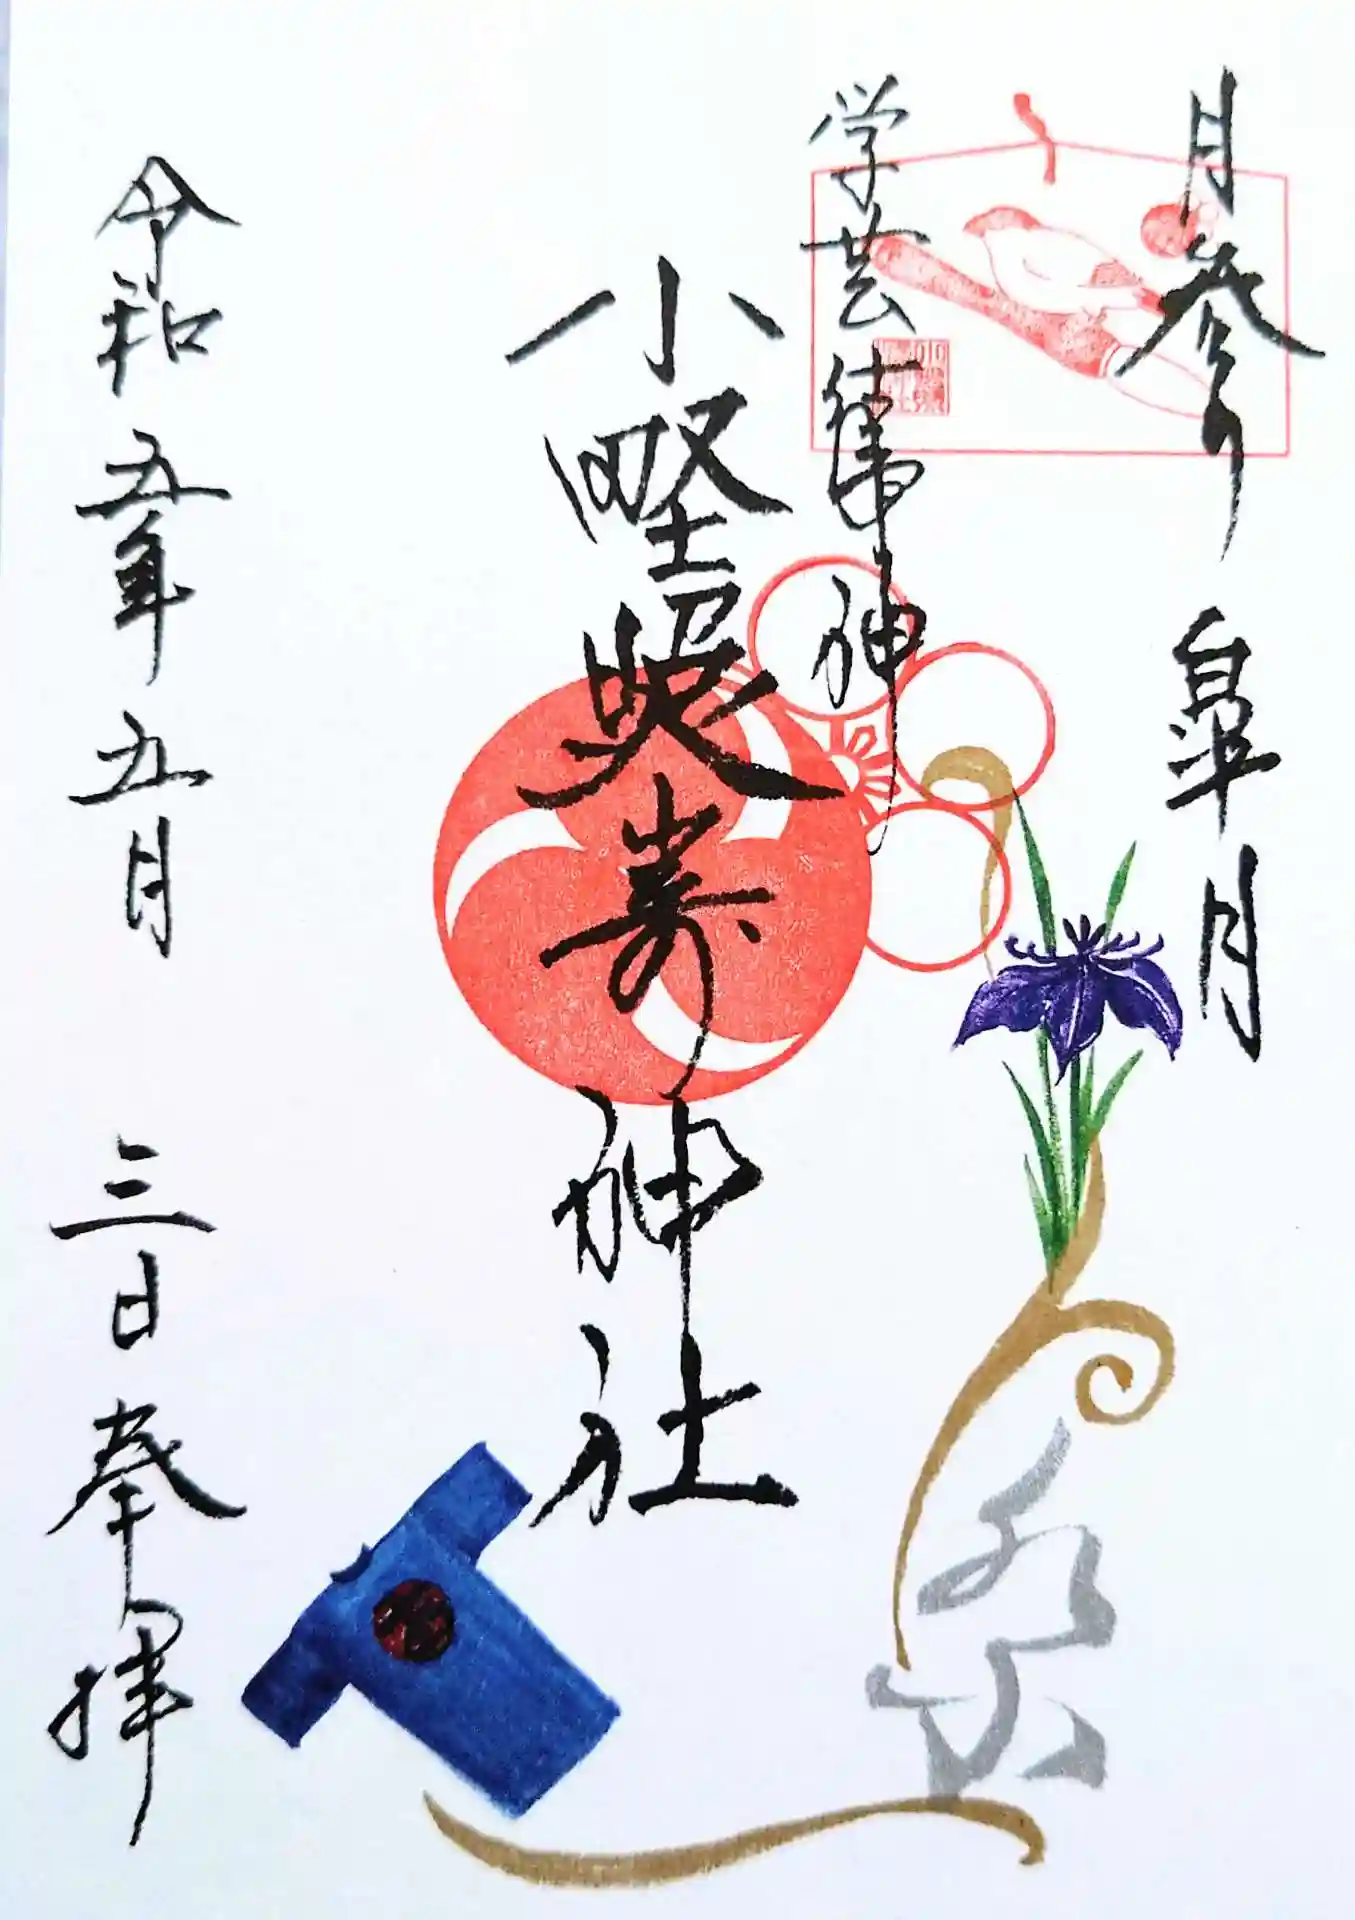 月参り　皐月
学芸 神
小野照崎神社
令和五年五月　三日　奉拝